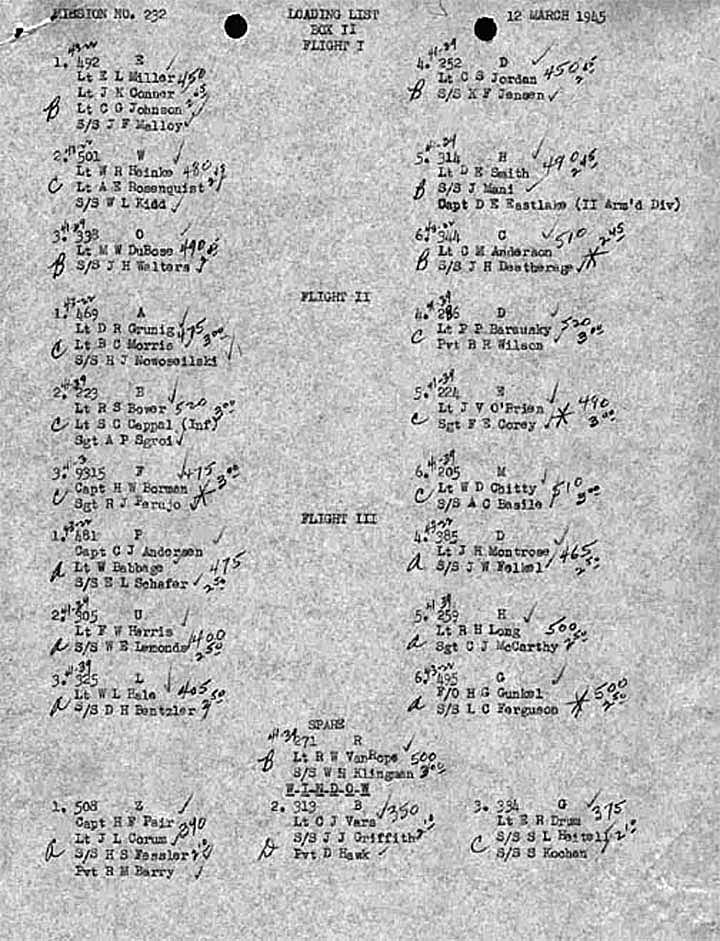 MISSION NO. 232 LOADING LIST 12 MARCH 1945
BOX II
FLIGHT I
43-22
1. 492 E
Lt E L Miller 450
Lt J K Conner
B Lt C G Johnson
S/S J F Malloy
41-39
4. 252 D
Lt C S Jordan 450
B S/S K F Jensen
2. 501 W
Lt W R Heinke 480
C Lt A E Rosenquist
S/S W L Kidd
5. 314 H
Lt D E Smith 490
B S/S J Mani
Capt D E Eastlake (II Arm'd Div)
3. 338 O
Lt M W DuBose 490
B S/S J H Walters
6. 344 C 510 2 45
Lt C M Anderson
B S/S J H Deatherage
FLIGHT II
43-22
1. 469 A
Lt D R Grunig 475
C Lt B C Morris 3 00
S/S H J Nowoseilski
4. 286 D
Lt P P Barsusky 520
C Pvt B R Wilson 3 00
2. 223 B
Lt R S Bower 520
C Lt S C Cappal (Inf) 3 00
Sgt A P Sgroi
41-39
5. 224 E
Lt J V O'Brien 490
C Sgt F E Corey 3 00
3. 9315 F 475
C Capt H W Borman 3 00
Sgt R J Parujo
41-39
6. 205 M
C Lt W D Chitty 510
S/S A C Basile 3 00
FLIGHT III
43-22
1. 481 P
Capt C J Andersen
A Lt W Babbage 475
S/S E L Schafer 2 50
43-22
4. 385 D
Lt J H Montrose 465
A S/S J W Felkel 2 50
41-39
2. 305 U
Lt F W Harris 400
A S/S W E Lemonds 2 50
41-39
5. 259 H
Lt R H Long 500
A Sgt C J McCarthy 2 50
41-39
3. 325 L
Lt W L Hale 405
A S/S D H Bentzler 2 50
43-22
6. 495 G
F/O H G Gunkel 500
A S/S L C Ferguson 2 50
SPARE
41-39
271 R
B Lt R W VanRope 500
S/S W H Klingman 3 00
W-I-N-D-O-W
1. 508 Z
Capt H F Pair 390
Lt J L Corum
A S/S H S Fessler
Pvt R M Barry
2. 313 B 350
Lt C J Vars
S/S J J Griffith
D Pvt D Hawk
3. 334 G 375
Lt E R Drum
C S/S S L Haitely
S/S S Kochan